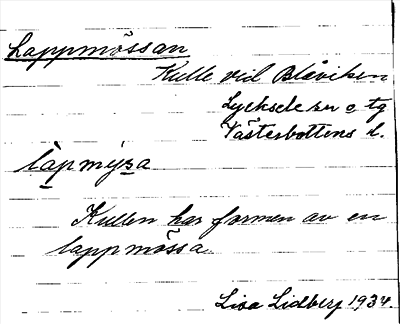 Lappmössan
Kulle vid Blåviken
Lycksele sn o tg
Västerbottens l.
lapmysa
Kullen har formen av en
lappmössa.
Lisa Lidberg 1934.